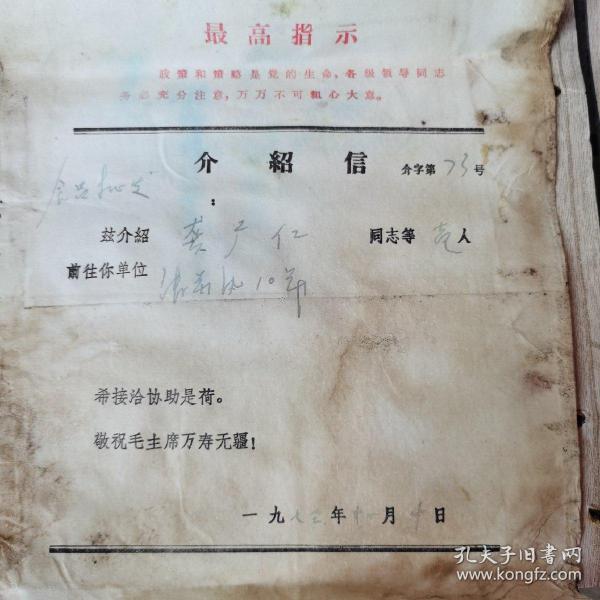 最高指示
政策和策略是党的生命，各级领导同志
务必充分注意，万万不可粗心大意。
介紹信
介字第73号
：
兹介紹 龚广仁 同志等 壱人
前往你单位
希接洽协助是荷。
敬祝毛主席万寿无疆！
一九七三年 月 日
孔夫子旧书网
www.kongfz.com